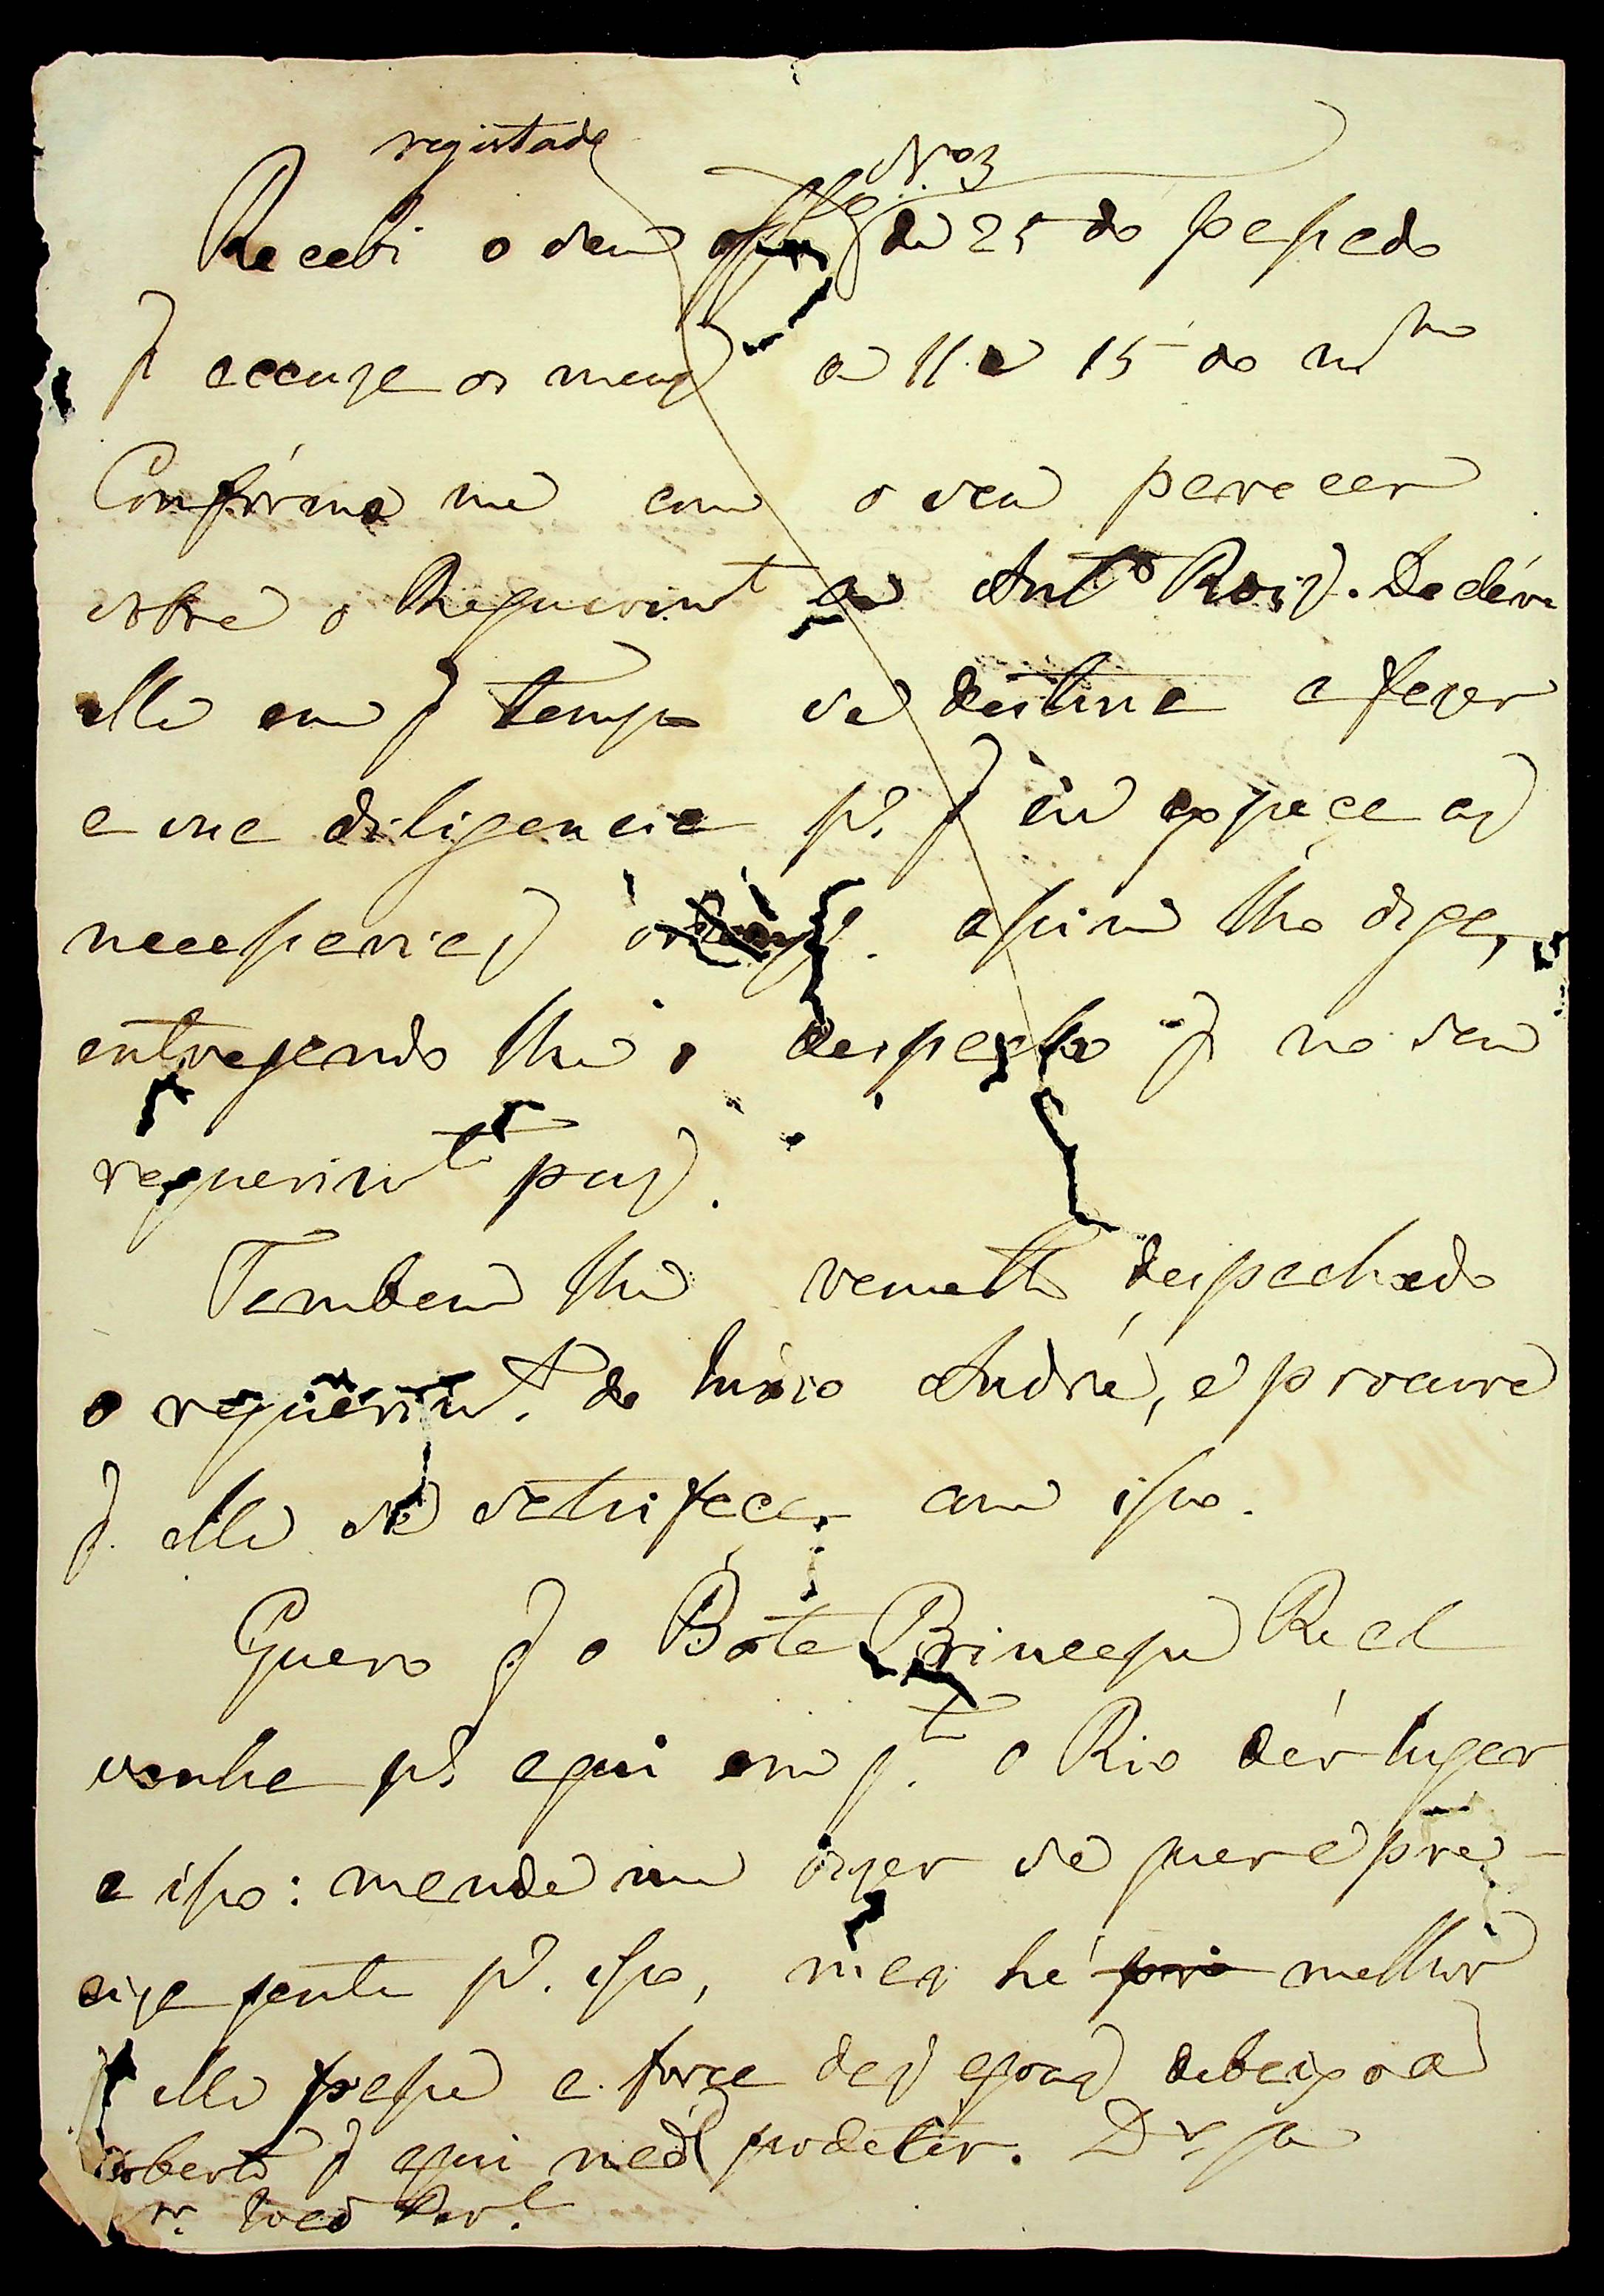 registado
N.º 3
Recebi o seu off.º de 25 do passado
q accusa os meus de 11 e 15 do m.mo
Confórmo me com o seu parecer
sobre o Requerim.t de Ant.º Roiz. Declére
elle em q tempo se destina a fazer
a sua diligencia p.ª q eu expessa as
necessarias ordens. assim lho diga,
entregando lhe o despacho q no seu
requerim.to puz.
Tambem lhe remetto despachado
o requerim.t do Lúcio André, e procure
q. elle se satisfaça com isso.
Quero q o Bóte Principe Real
venha p.ª aqui em q.to o Rio dér lugar
a isso: mande me dizer se para é pre-
cisa gente p.ª isso, mas hé melhor
elle passe a força das agoas debaixo de
coberto q aqui não póde ter. D.s g.e